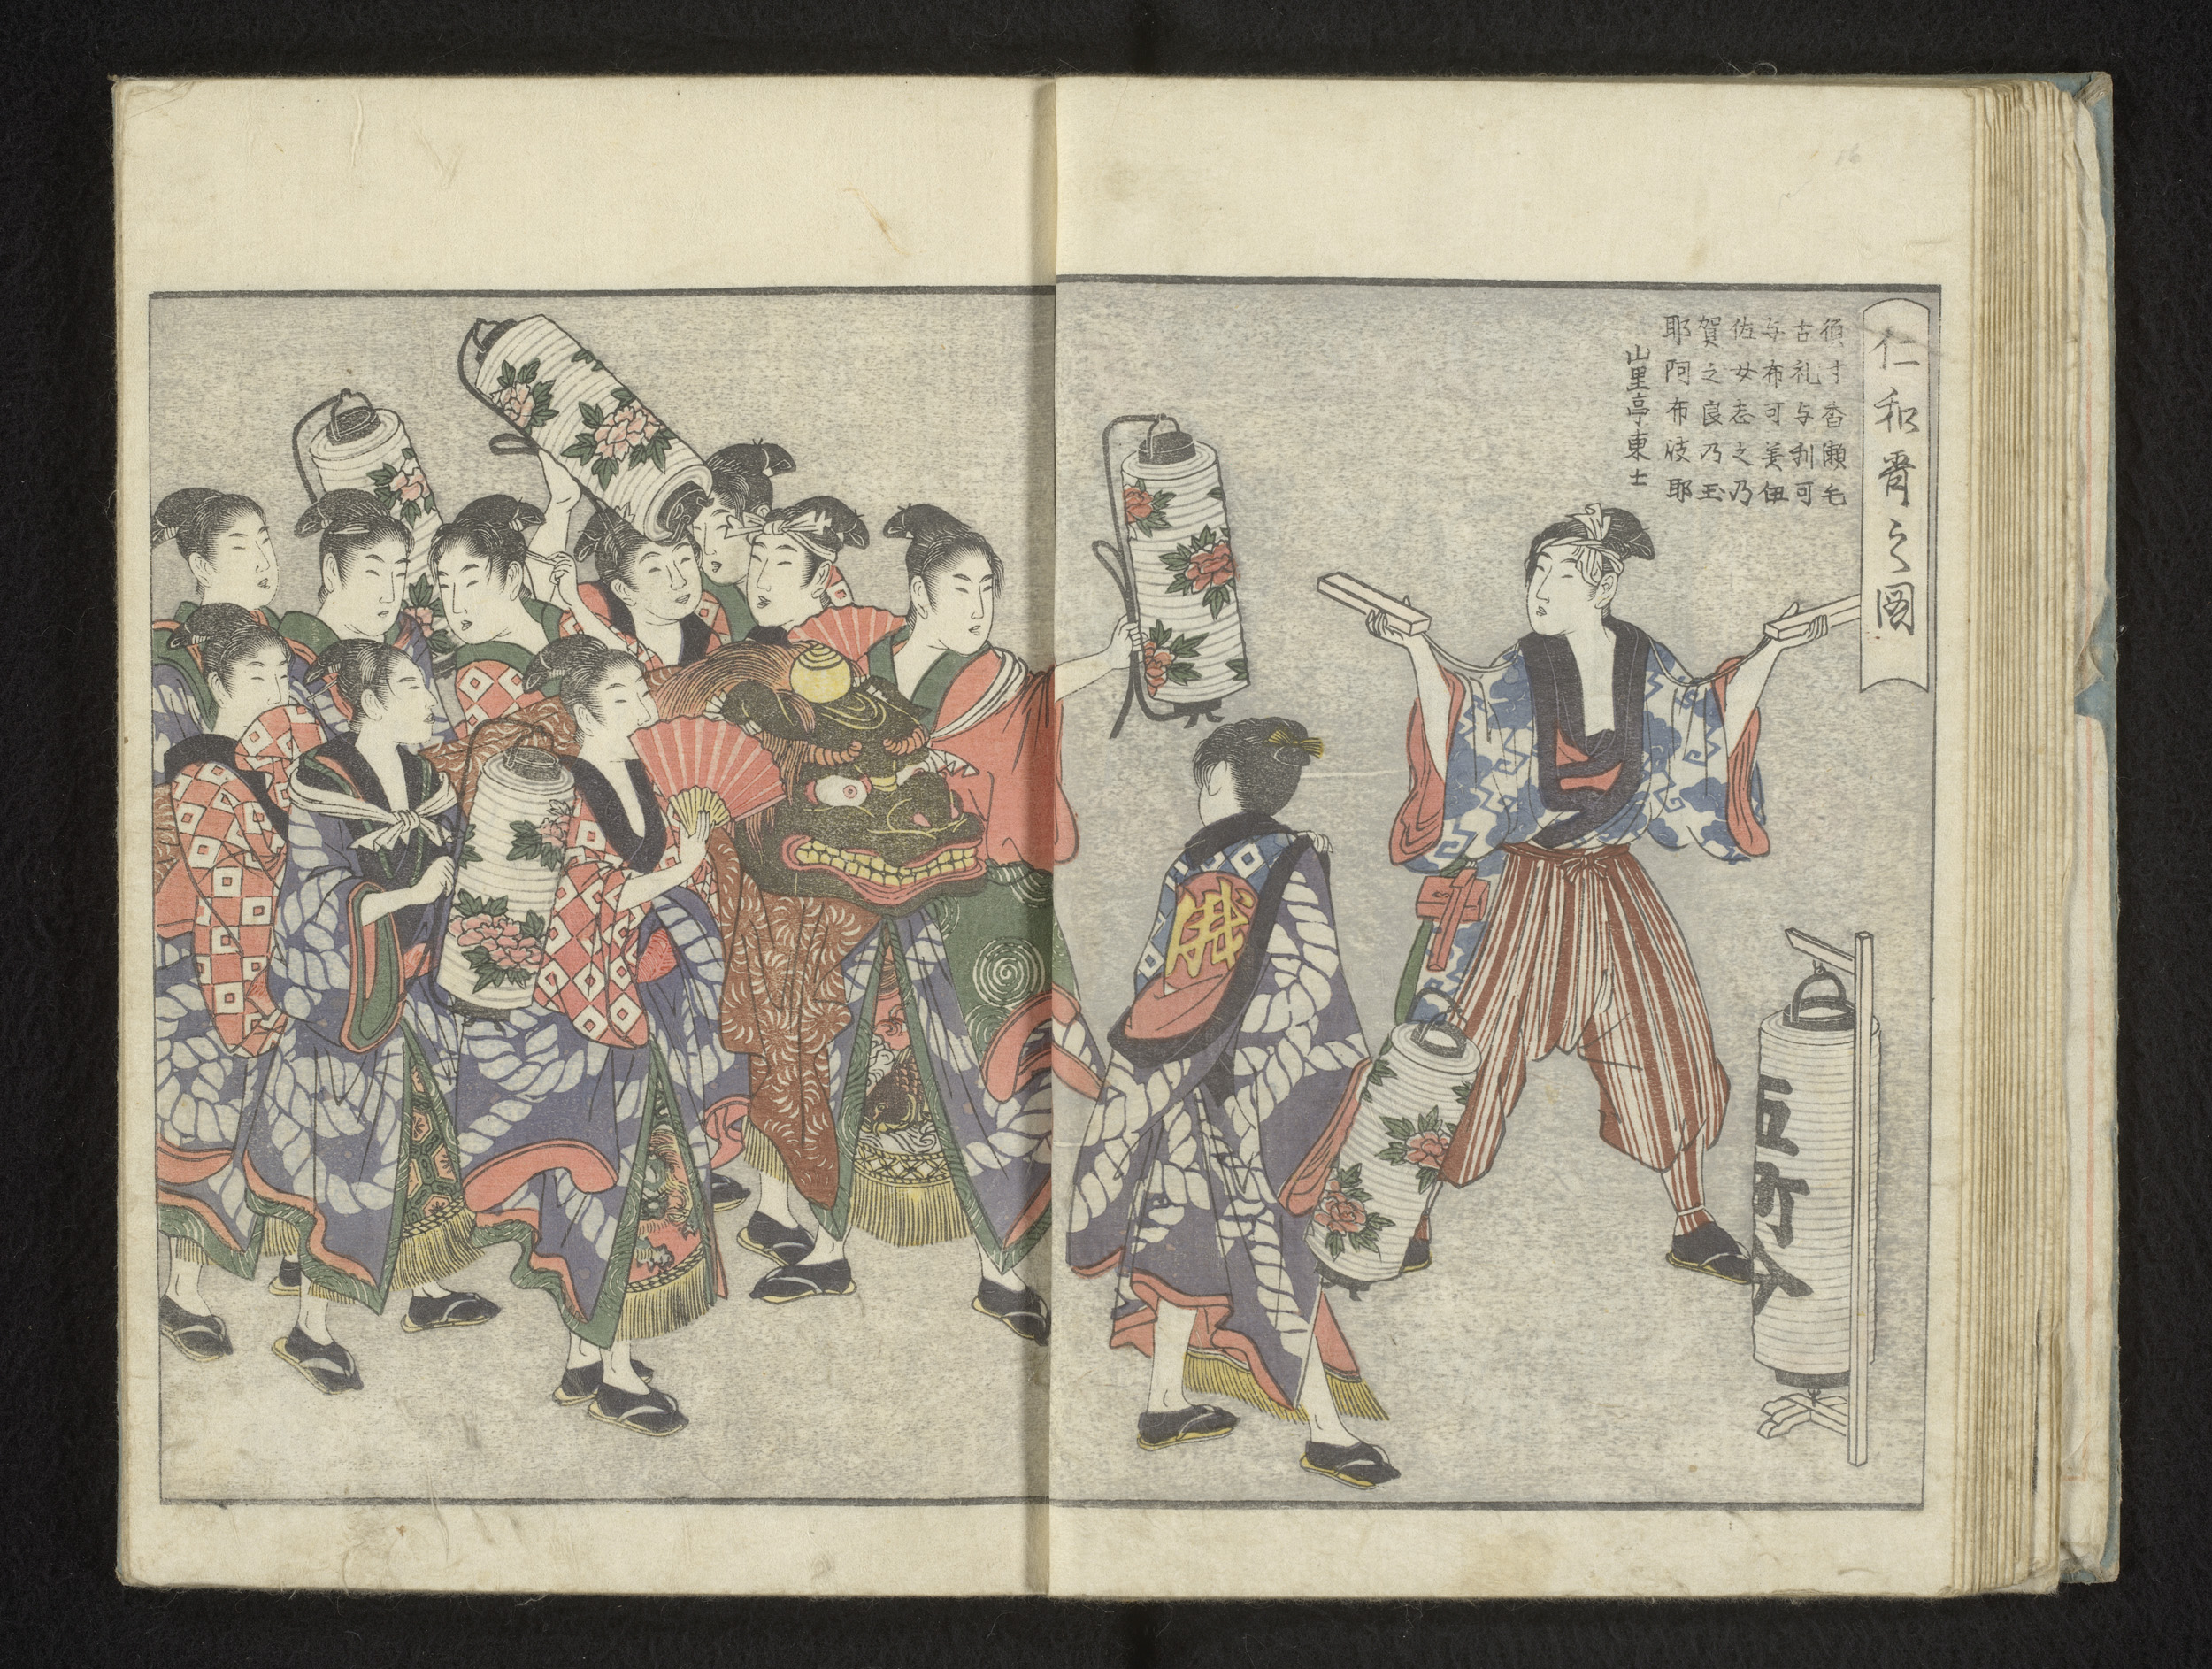 仁和賀之図
須寸香瀬毛
古礼与利可
与布可美伊
佐女志之乃
賀之良乃玉
耶阿布伎耶
山里亭東士
五町
16